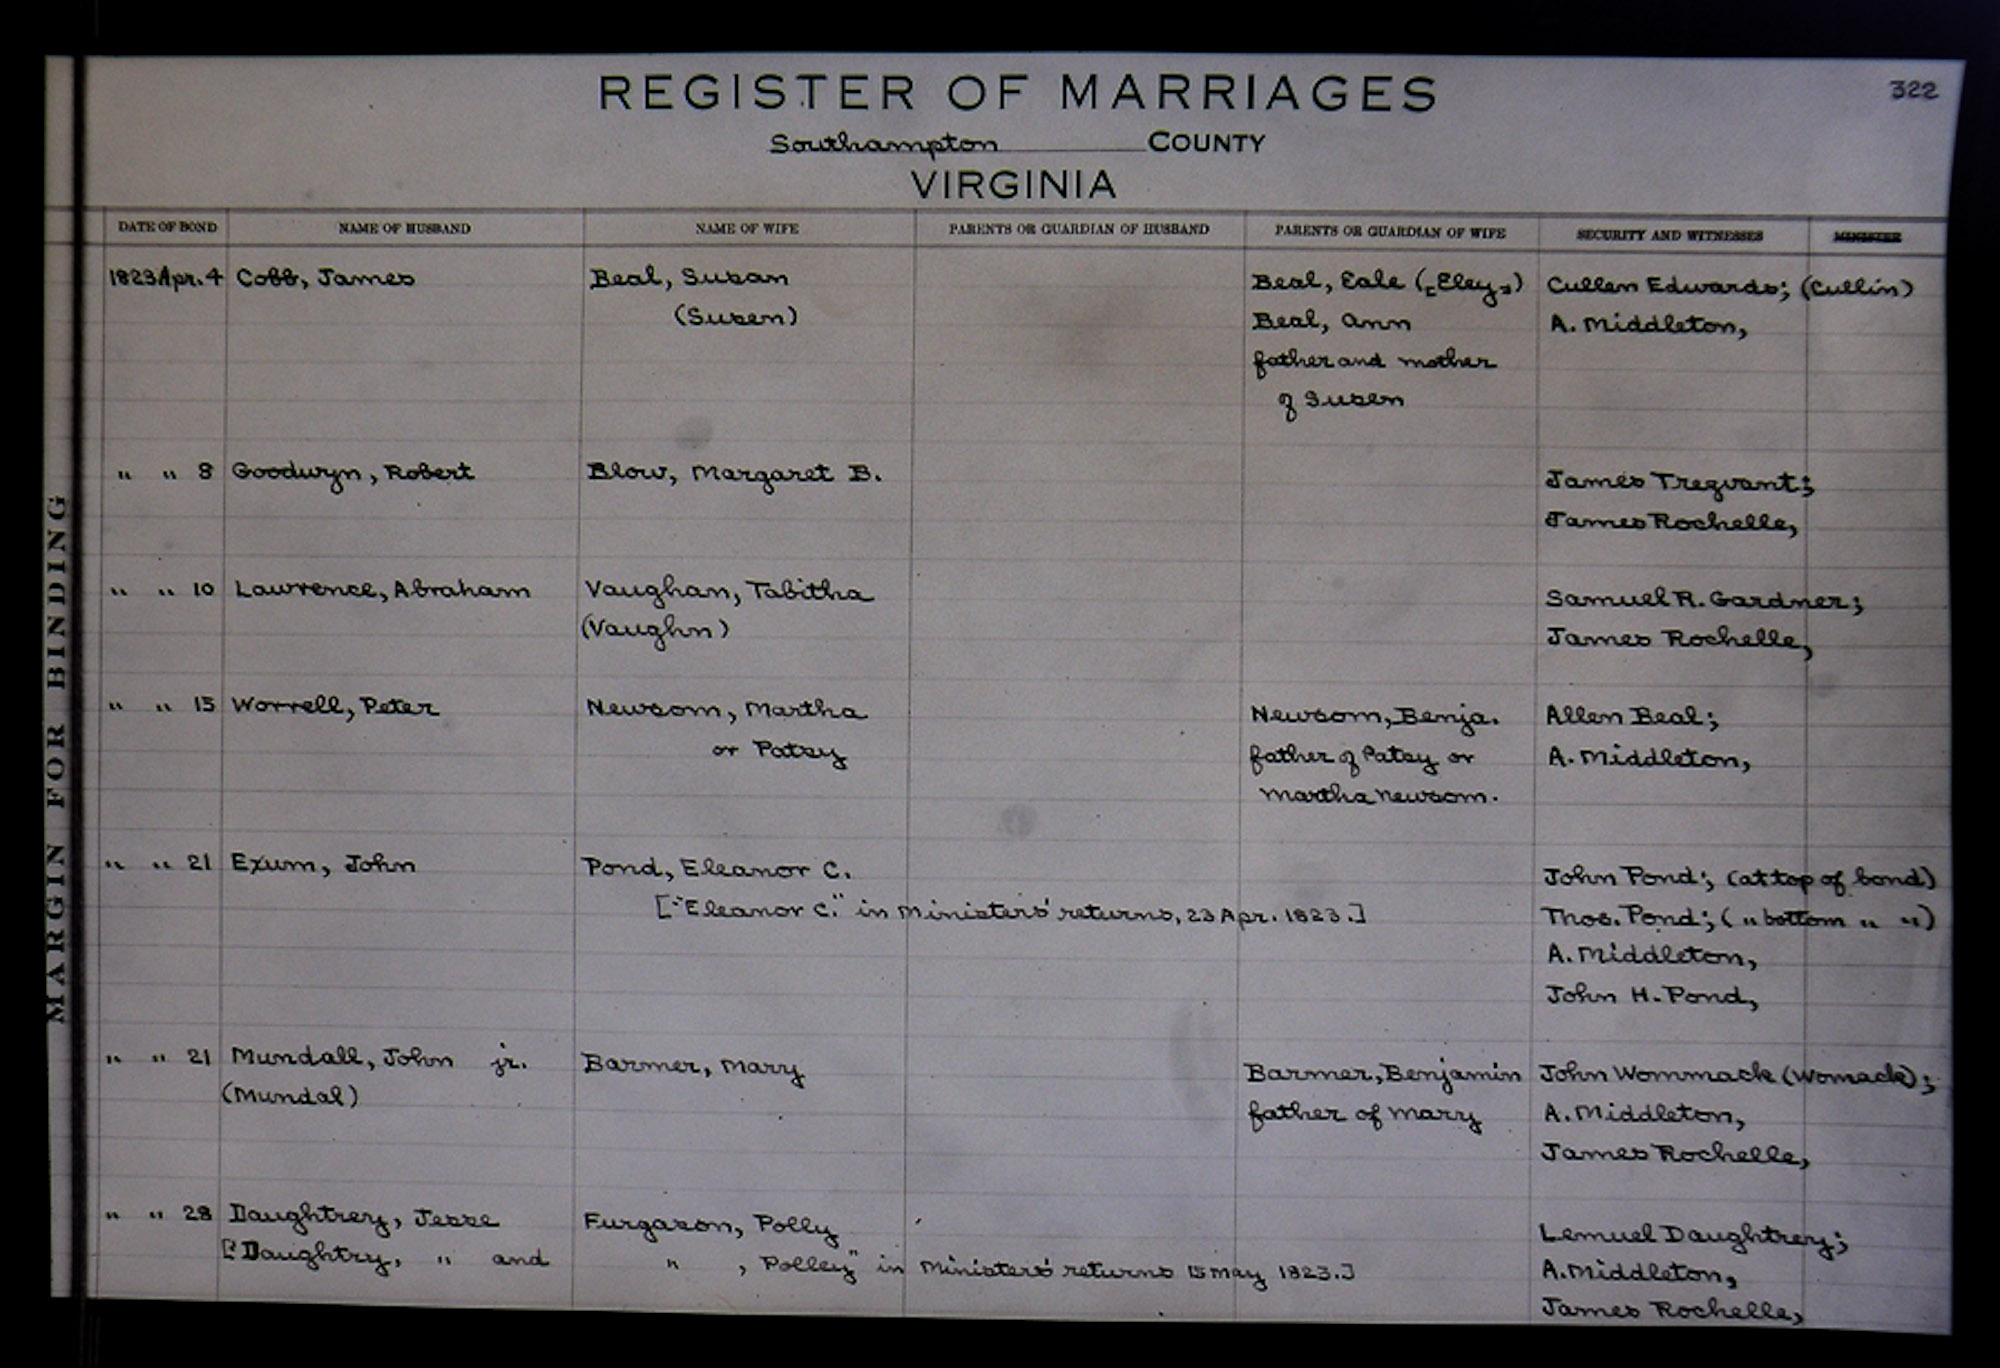 322
REGISTER OF MARRIAGES
Southampton COUNTY
VIRGINIA
MARGIN FOR BINDING
DATE OF BOND NAME OF HUSBAND NAME OF WIFE PARENTS OR GUARDIAN OF HUSBAND PARENTS OR GUARDIAN OF WIFE SECURITY AND WITNESSES MINISTER
1823 Apr. 4 Cobb, James Beal, Susan Beal, Eale ([Eley]) Cullen Edwards; (Cullin)
(Susen) Beal, Ann A. Middleton,
father and mother
of Susen
" " 8 Goodwyn, Robert Blow, Margaret B. James Trezvant;
James Rochelle,
" " 10 Lawrence, Abraham Vaughan, Tabitha Samuel R. Gardner;
(Vaughn) James Rochelle,
" " 15 Worrell, Peter Newsom, Martha Newsom, Benja. Allen Beal;
or Patsy father of Patsy or A. Middleton,
Martha Newsom.
" " 21 Exum, John Pond, Eleanor C. John Pond; (at top of bond)
["Eleanor C." in Ministers' returns, 23 Apr. 1823.] Thos. Pond; ( " bottom " " )
A. Middleton,
John H. Pond,
" " 21 Mundall, John jr. Barmer, Mary Barmer, Benjamin John Wommack (Womack);
(Mundal) father of Mary A. Middleton,
James Rochelle,
" " 28 Daughtrey, Jesse Furgason, Polly Lemuel Daughtrey;
["Daughtry, " and " , Polley" in Ministers' returns 15 May 1823.] A. Middleton,
James Rochelle,